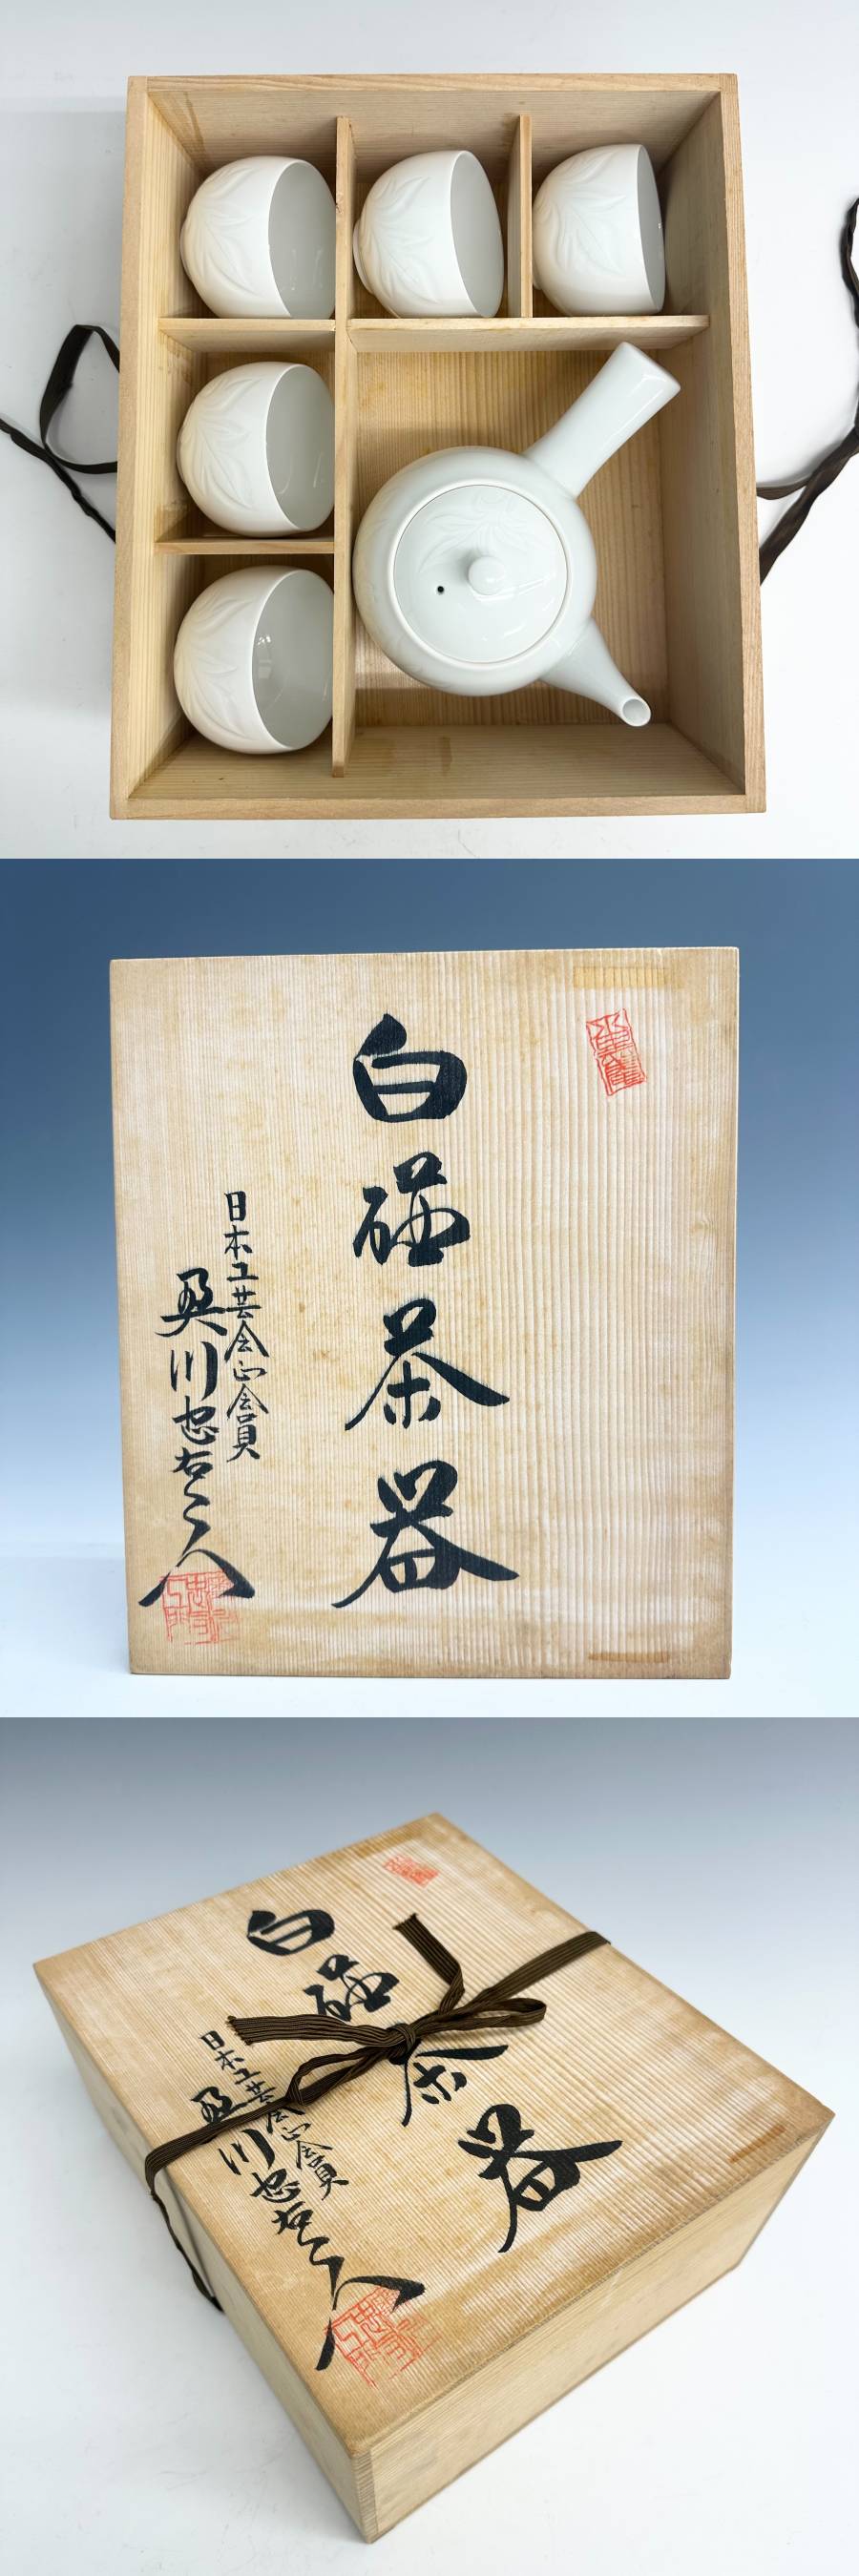 白磁茶器
日本工芸会正会員
奥川忠右エ門
白磁茶器
日本工芸会正会員
奥川忠右エ門